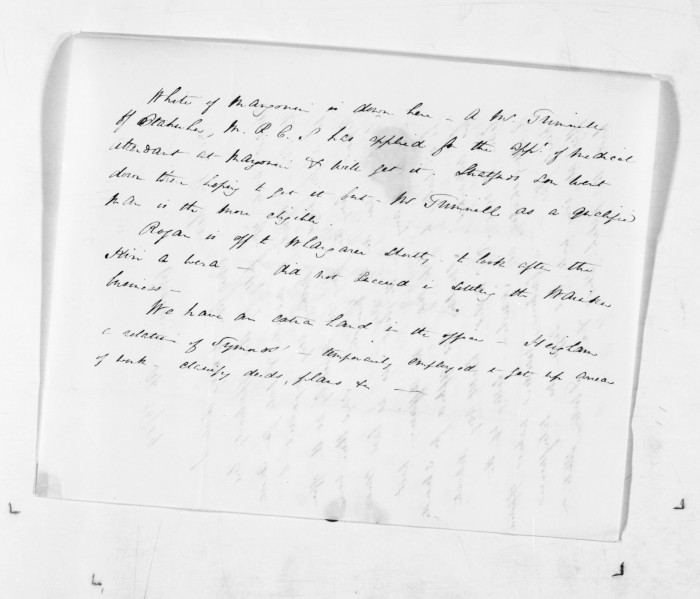 White of Mangonui is down here - A Mr. Trimnell
of Otahuhu, M.R.C.S has applied for the appt. of Medical
attendant at Mangonui & will get it. son went
down there hoping to get it but - Mr Trimnell as a qualified
man is the more eligible
Rogan is off to Whangarei shortly - to look after the
Hiri a wera - did not succeed in settling the Wairoa
business -
We have an extra hand in the office - Heigham
a relation of - temporarily employed to get up arrears
of work classify deeds, plans &c -